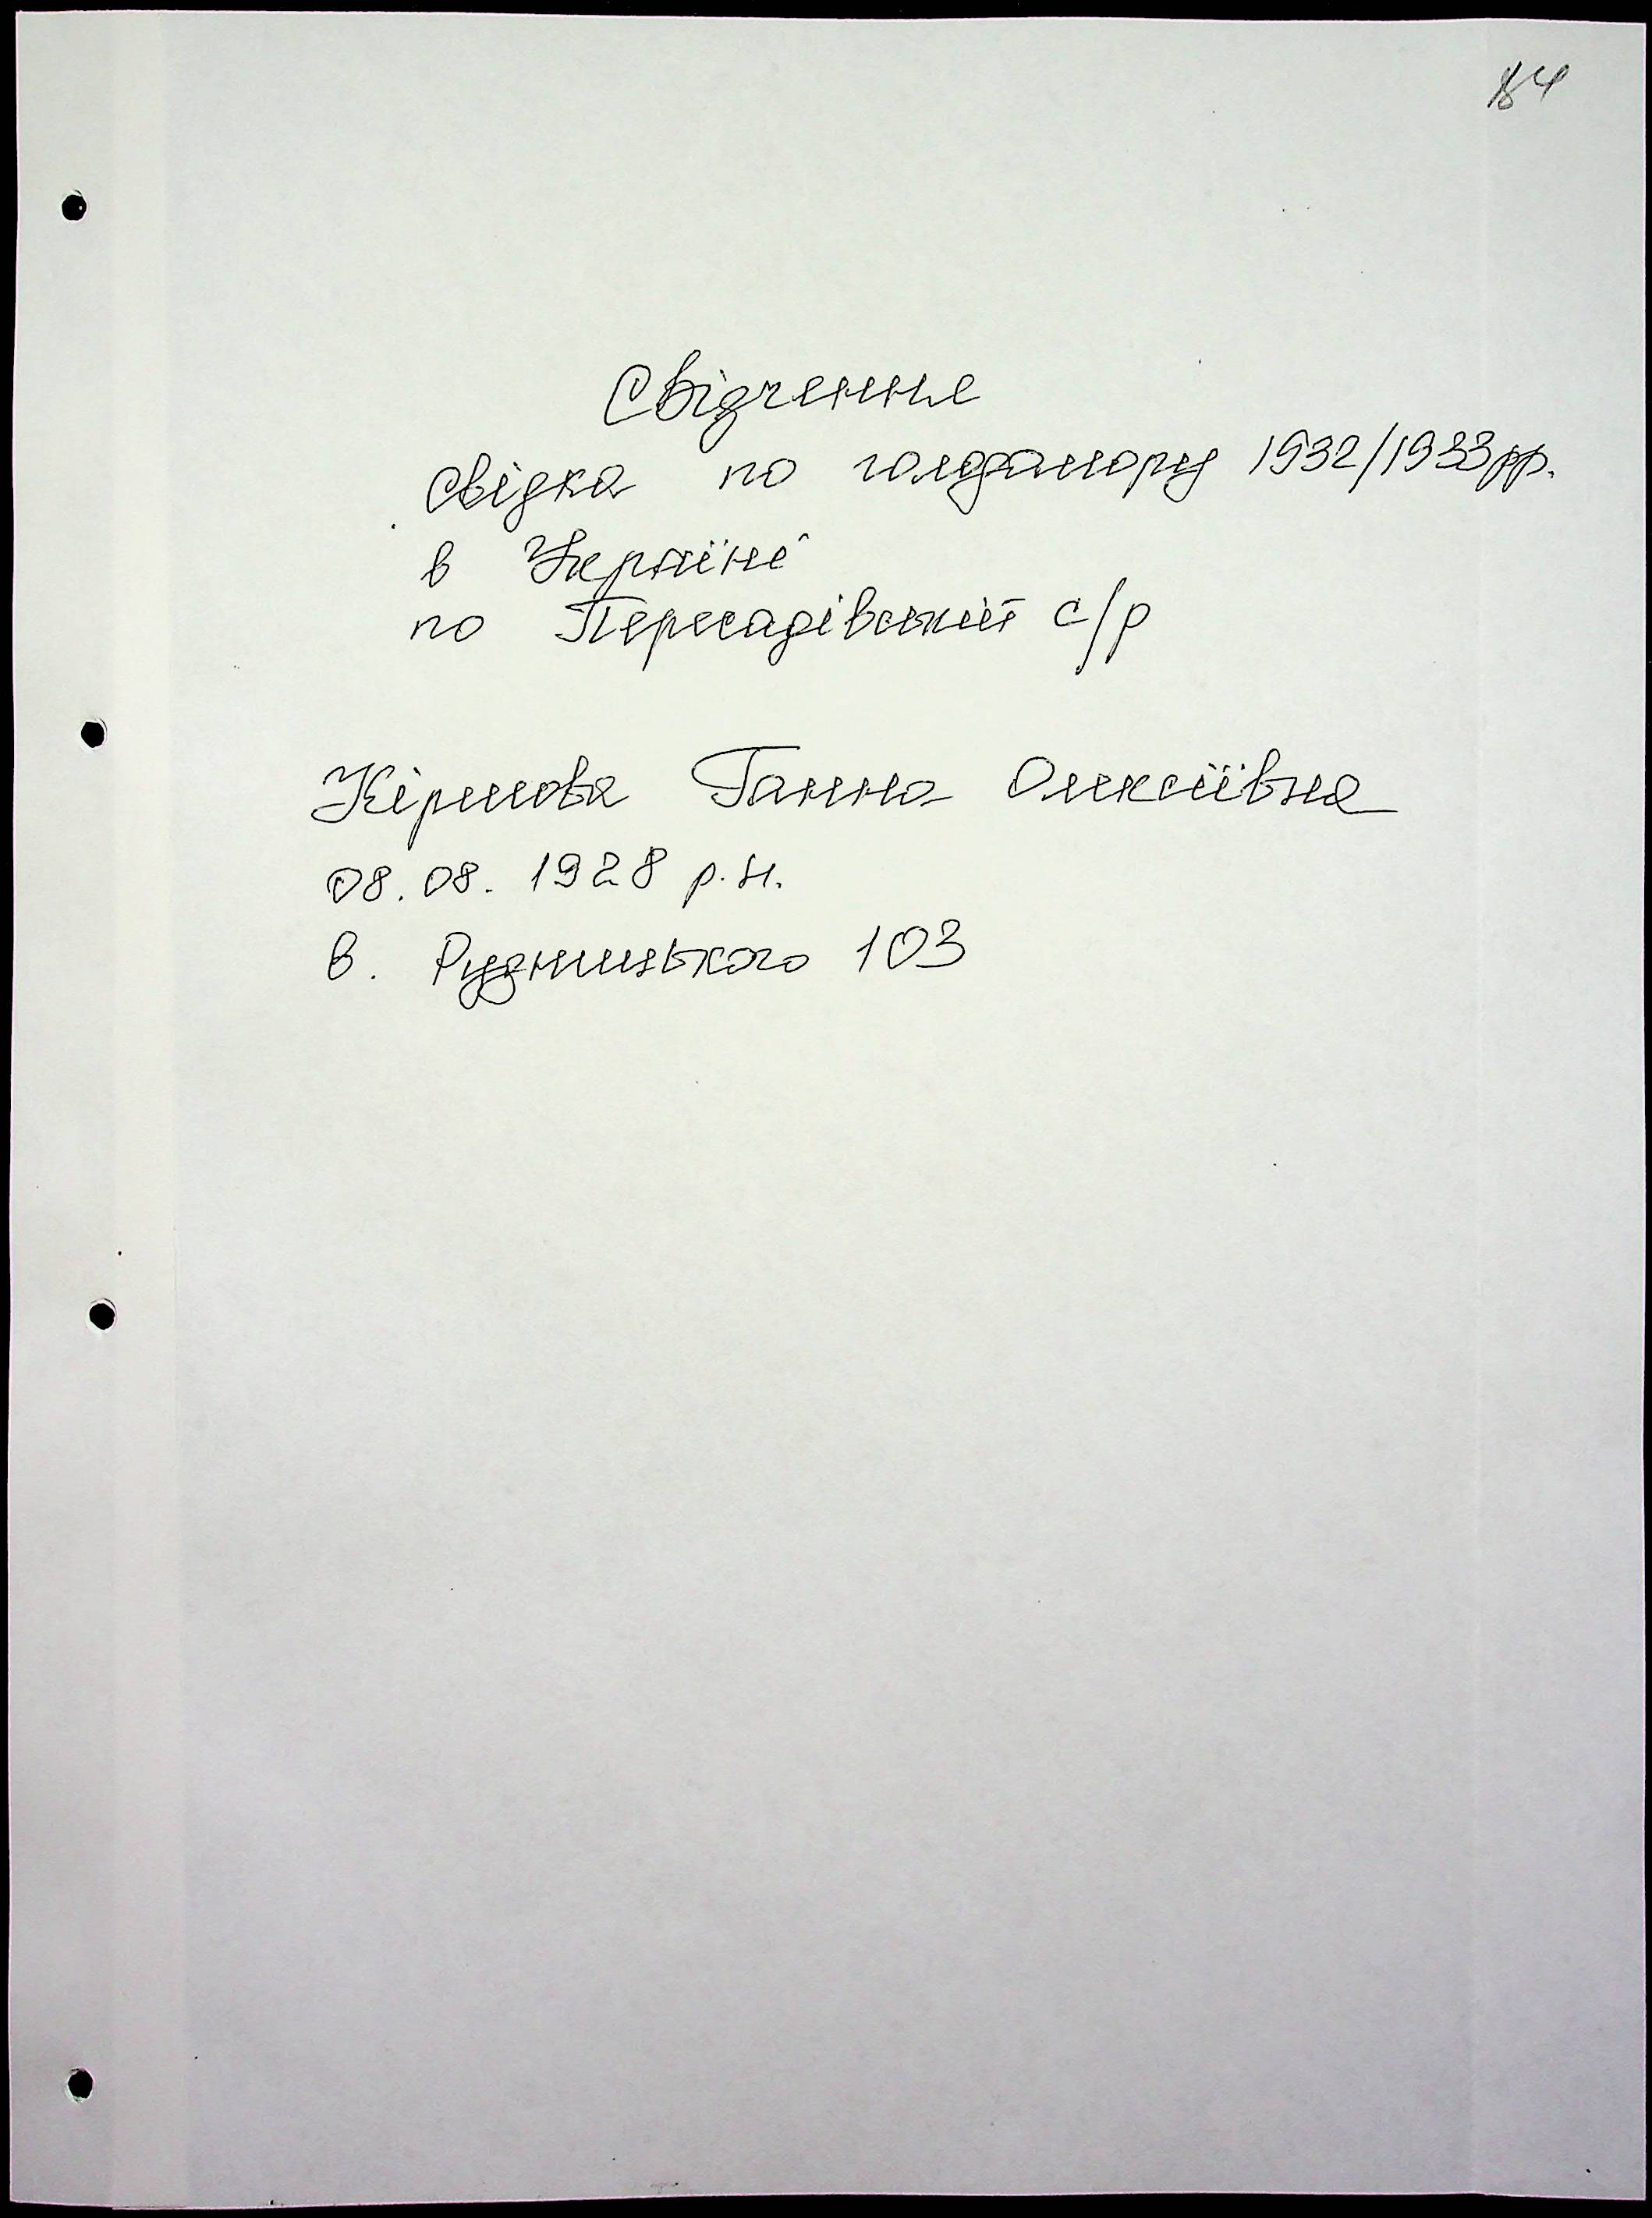 84
Свідчення
свідка по голодамору 1932/1933 рр.
в Україні
по Пересадівській с/р
Кірмова Ганна Олексіївна
08.08.1928 р.н.
в. Рудницького 103